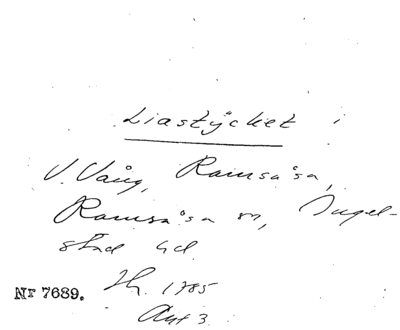 Liastycket i
V. Vång, Ramsåsa,
Ramsåsa sn, Ingel-
stad hd.
Nr 7689.
Th. 1785
Akt 3